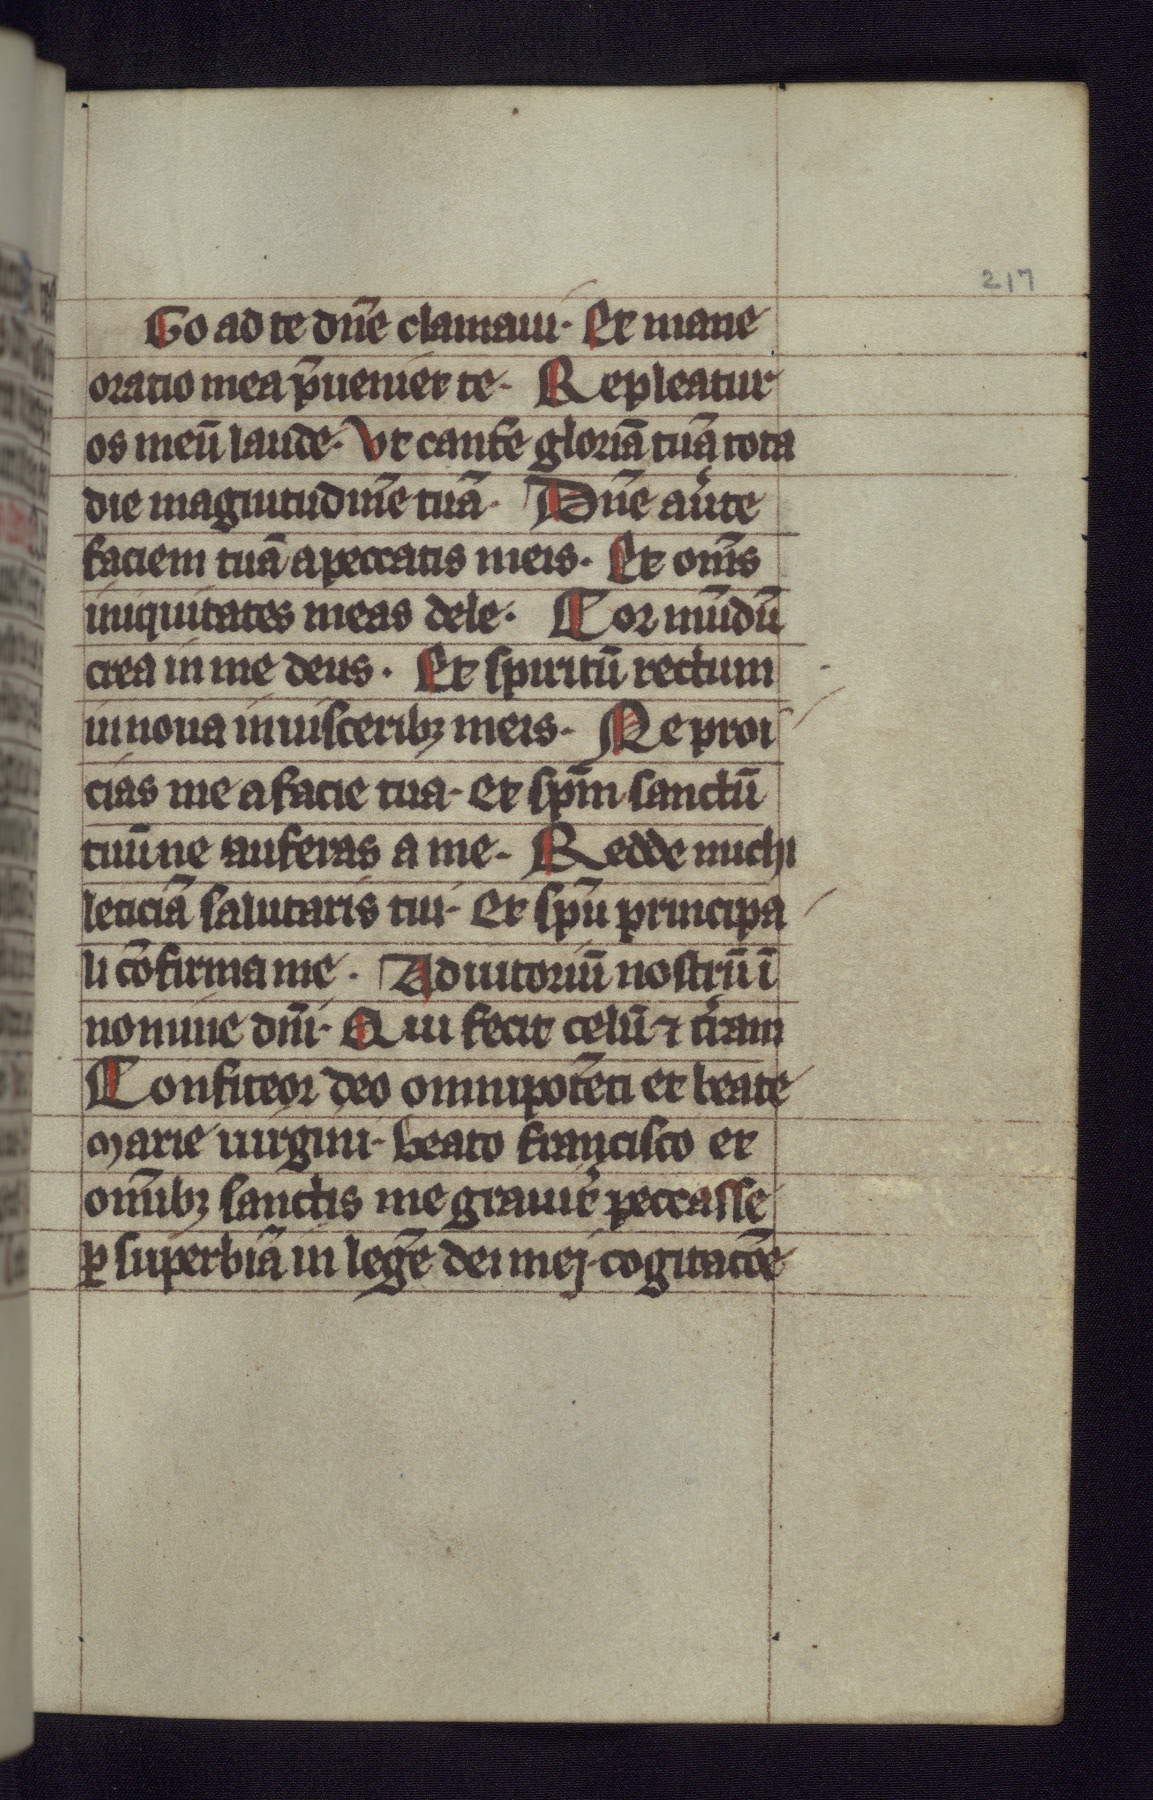 217
Go ad te dn̄e clamaui· Et mane
oratio mea p̄ueniet te· Repleatur
os meū laude· Vt cantē gloriā tuā tota
die magnitudinē tuā· Dn̄e au̓te
faciem tuā a peccatis meis· Et om̄s
iniquitates meas dele· Cor mūdū
crea in me deus· Et spiritū rectum
innoua in uisceribꝫ meis· Ne proi
cias me a facie tua· et sp̄m sanctū
tuū ne auferas a me· Redde michi
leticiā salutaris tui· Et sp̄u principa
li cōfirma me· Adiutoriū nostrū ī
nomine dn̄i· Qui fecit celū ⁊ t̓ram
Confiteor deo omnipotēti et beate
Marie uirgini· beato francisco et
om̄ibꝫ sanctis me grauit̓ peccasse
ꝑ superbiā in lege dei mei cogitatōe